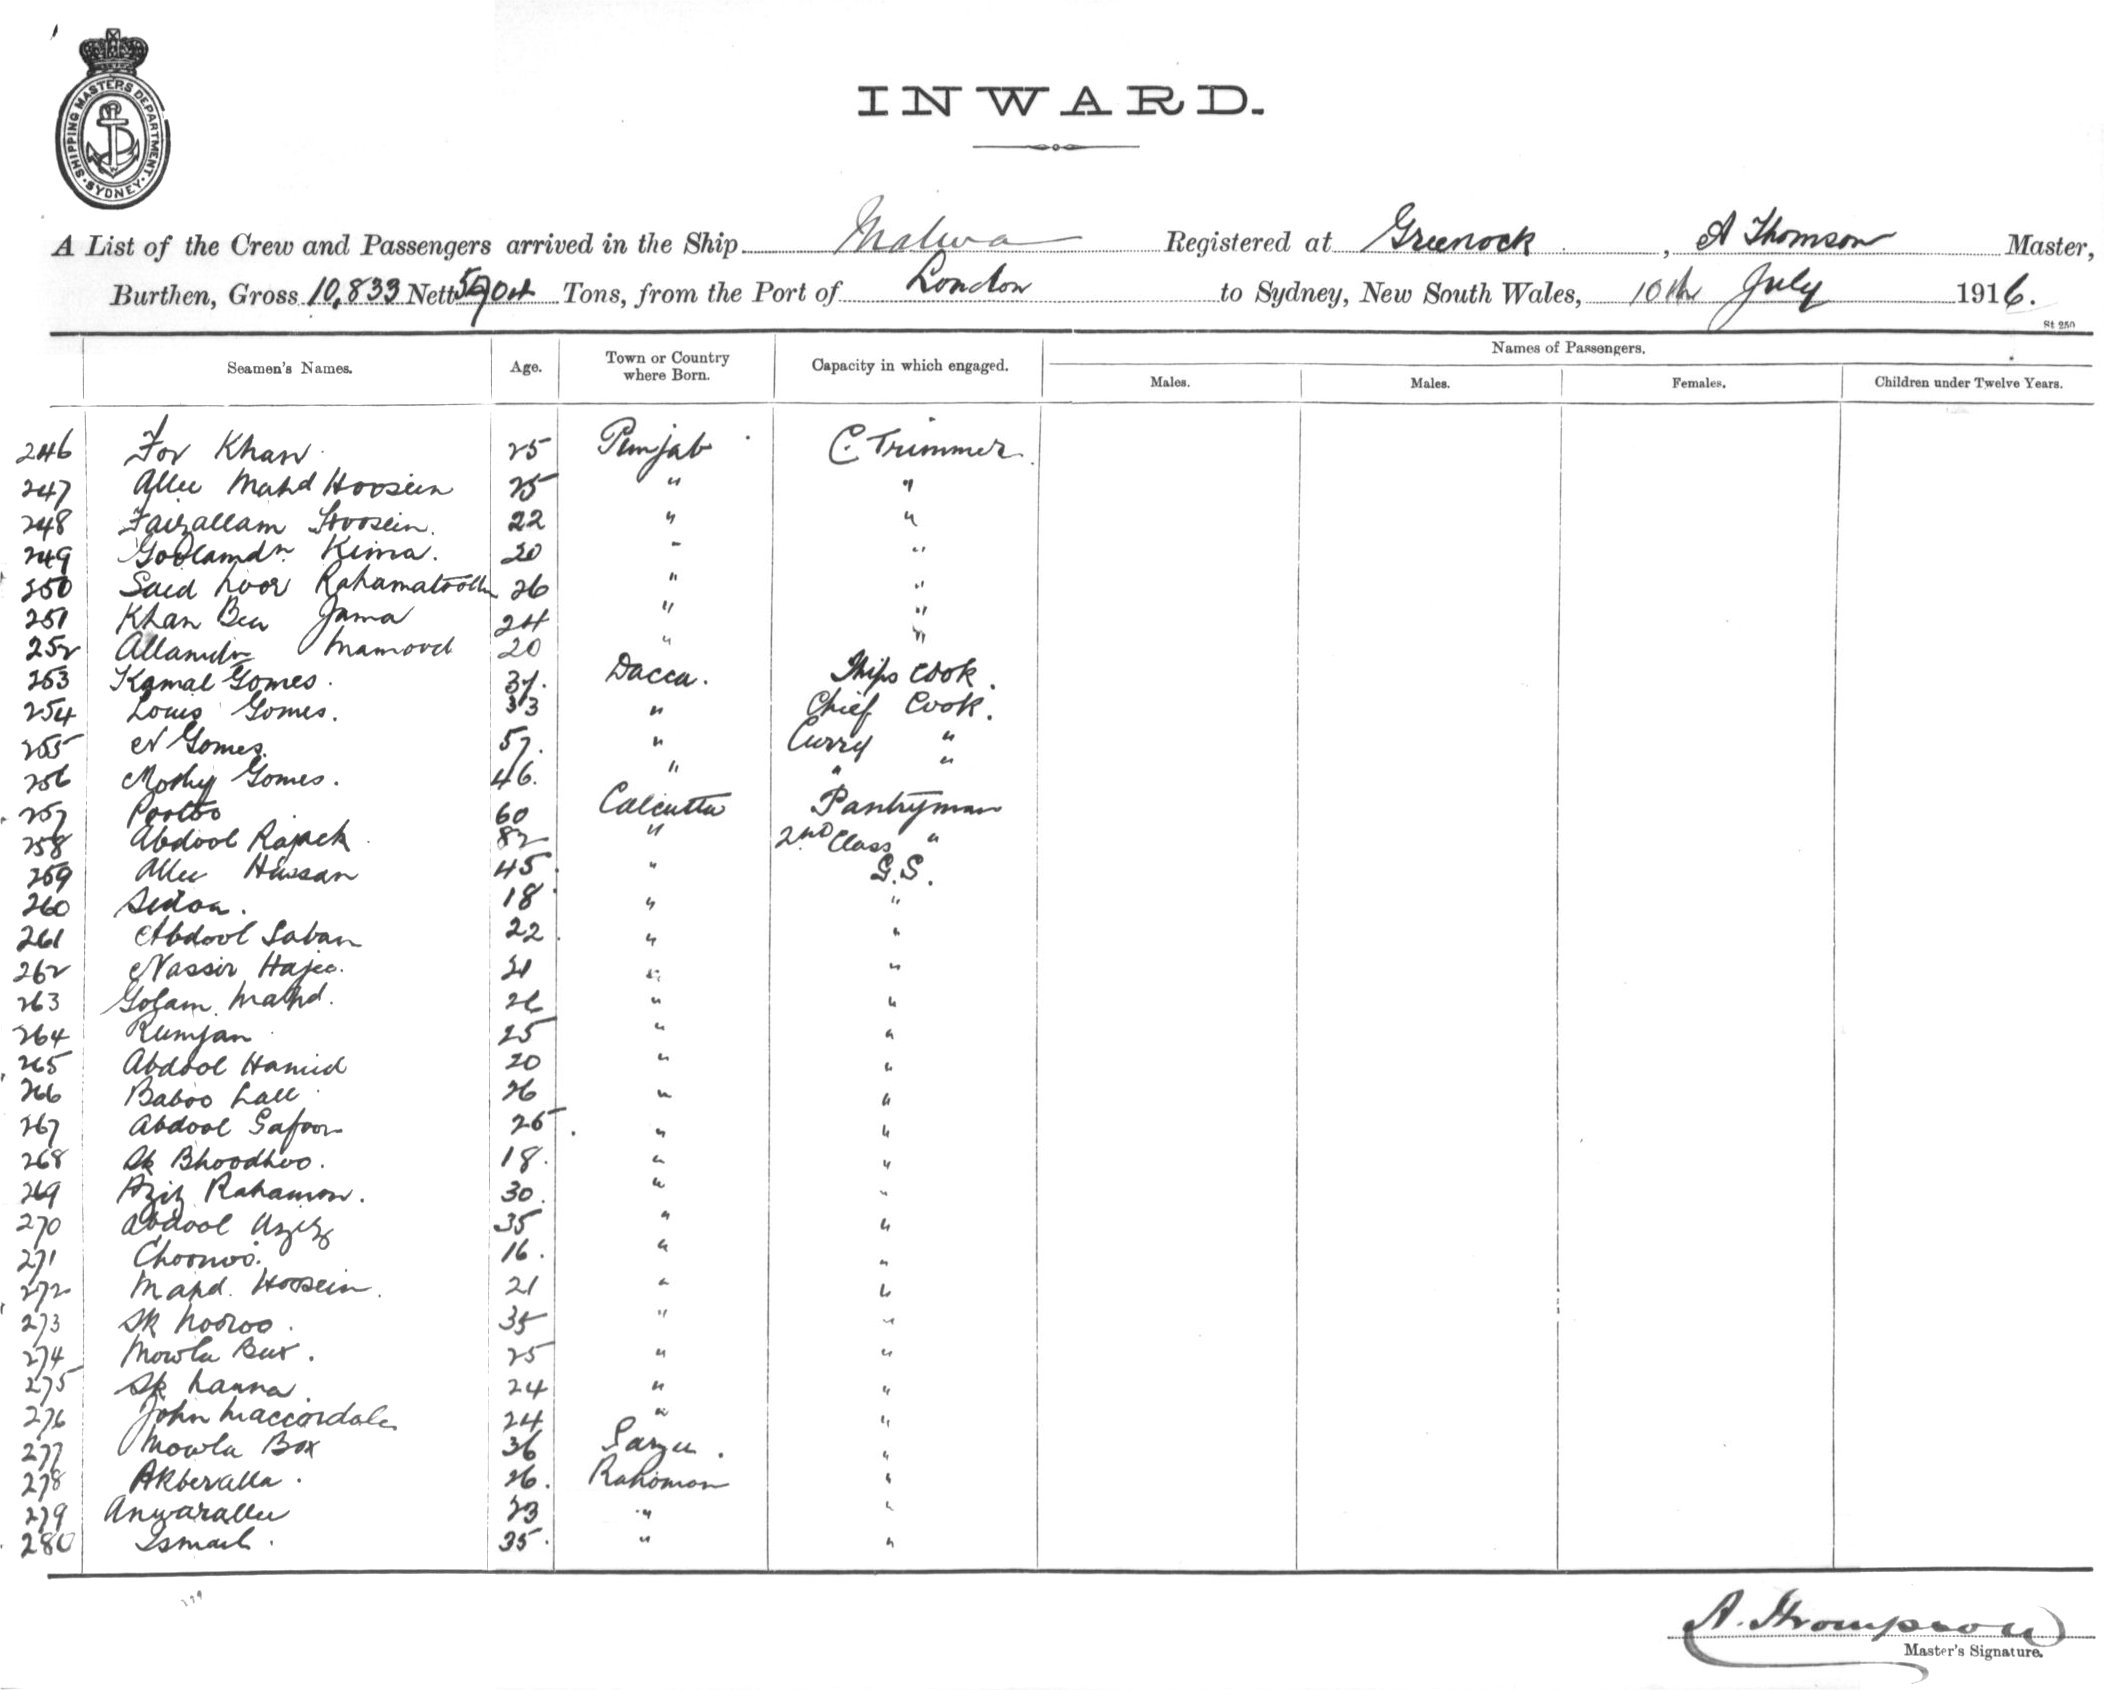 SHIPPING MASTERS DEPARTMENT. SYDNEY
INWARD.
A List of the Crew and Passengers arrived in the Ship Malwa Registered at Greenock, A Thomson Master,
Burthen, Gross 10,833 Nett Tons, from the Port of London to Sydney, New South Wales, 10th July 1916.
St 250
Seamen's Names. Age. Town or Country where Born. Capacity in which engaged. Names of Passengers.
Males. Males. Females. Children under Twelve Years.
246 For Khan 25 Punjab C. Trimmer
247 Allee Mahd Hoosein 25 " "
248 Faizallam Hoosein. 22 " "
249 Goolamdn Kima. 20 " "
250 Saed Noor Rahamatoolla 26 " "
251 Khan Bea Jama 24 " "
252 Allamdn Mamood 20 " "
253 Kamal Gomes. 37. Dacca. Ships Cook.
254 Louis Gomes. 33 " Chief Cook.
255 N Gomes. 57. " Curry "
256 Gomes. 46. " " "
257 Pootoo 60 Calcutta Pantryman
258 Abdool Rajack 82 " 2nd Class "
259 Allee Hassan 45 " G.S.
260 18 " "
261 Abdool Saban 22 " "
262 Nassir Hajee. 21 " "
263 Golam Mahd. 26 " "
264 Rumjan 25 " "
265 Abdool Hamid 20 " "
266 Baboo Lall 26 " "
267 Abdool Gafoor 25 " "
268 Sk Bhoodhoo. 18. " "
269 Aziz Rahamon. 30. " "
270 Abdool Aziz 35 " "
271 Choonoo. 16. " "
272 Mahd. Hoosein. 21 " "
273 Sk Nooroo. 35 " "
274 Mowla Bux. 25 " "
275 Sk Lanna. 24 " "
276 John 24 " "
277 Mowla Box 36 "
278 Akberalla. 26. Rahomon "
279 Anwarallee 23 " "
280 Ismail. 35. " "
A. Thompson
Master's Signature.